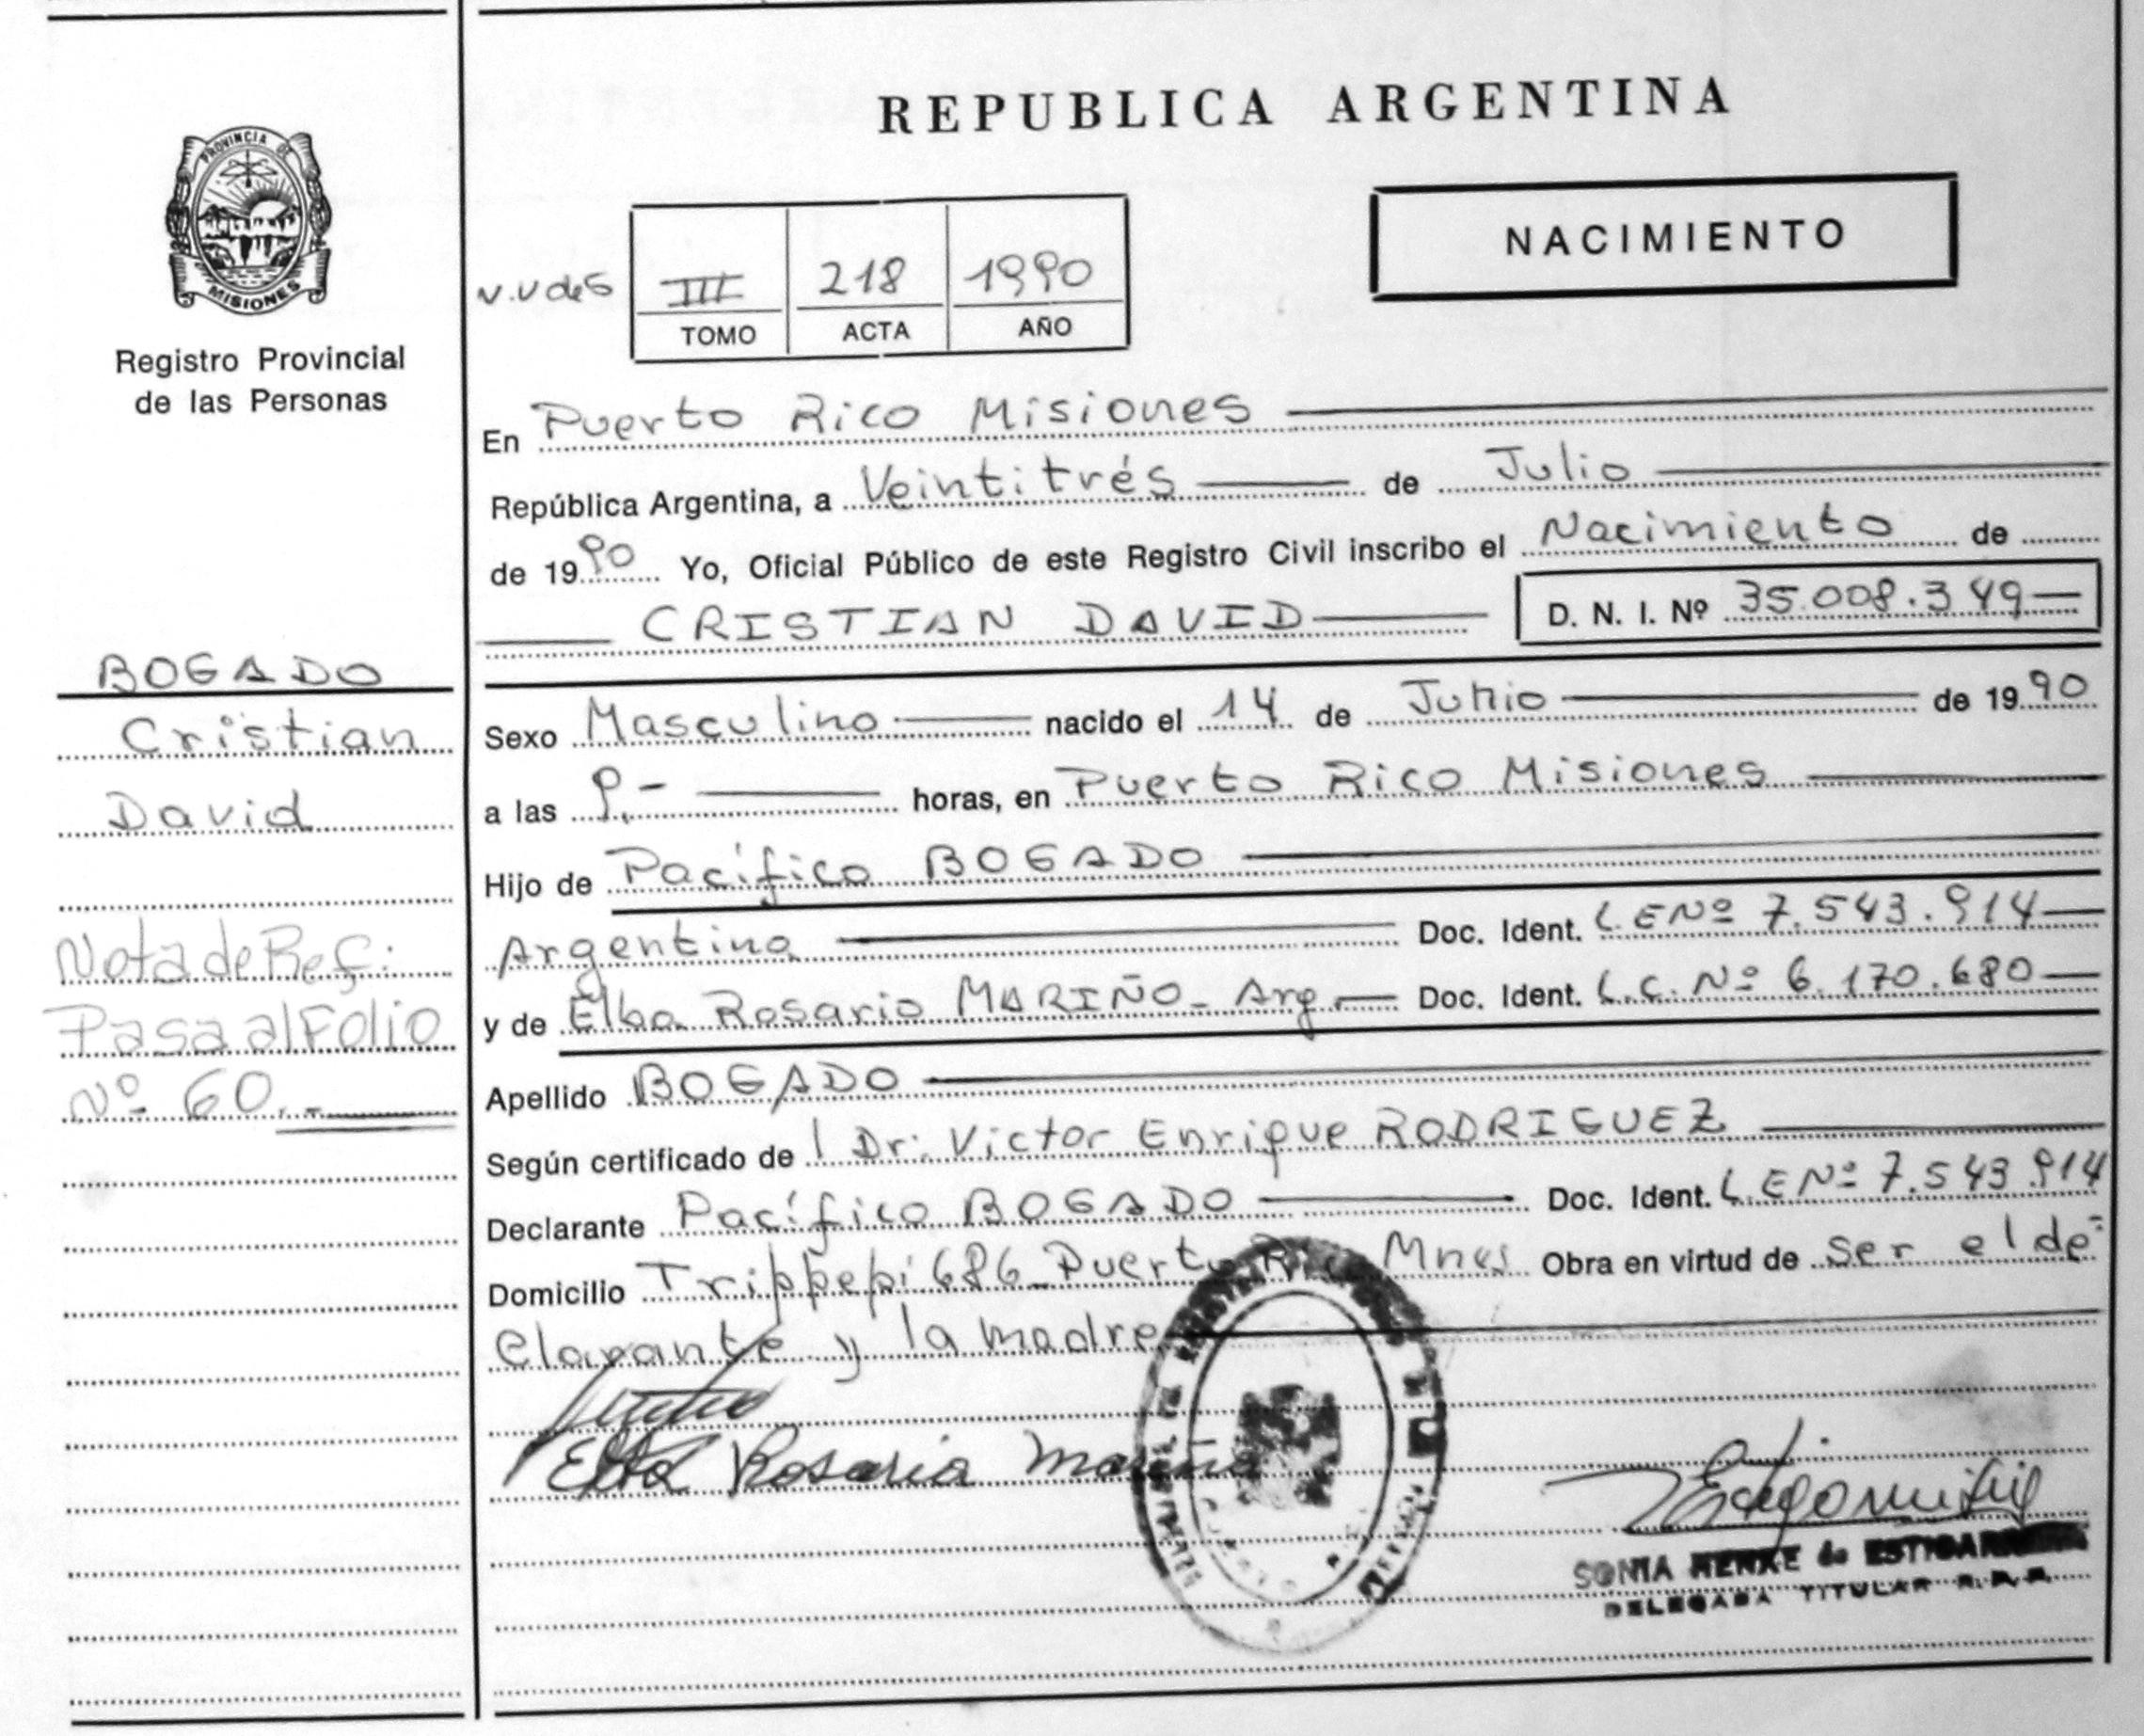 REPUBLICA ARGENTINA
PROVINCIA DE
MISIONES
Registro Provincial
de las Personas
NACIMIENTO
III 218 1990
TOMO ACTA AÑO
En Puerto Rico Misiones
República Argentina, a Veintitrés de Julio
de 1990 Yo, Oficial Público de este Registro Civil inscribo el Nacimiento de
CRISTIAN DAVID D. N. I. Nº 35.008.349
BOGADO
Cristian
David
Nota de Ref:
Pasa al Folio
Nº 60.-
Sexo Masculino nacido el 14 de Junio de 1990
a las 9.- horas, en Puerto Rico Misiones
Hijo de Pacífico BOGADO
Argentino Doc. Ident. L.E Nº 7.543.914
y de Elba Rosario MARIÑO- Arg. Doc. Ident. L.C. Nº 6.170.680
Apellido BOGADO
Según certificado de l Dr: Victor Enrique RODRIGUEZ
Declarante Pacífico BOGADO Doc. Ident. L.E Nº 7.543.914
Domicilio Trippepi 686- Puerto Rico Mnes Obra en virtud de ser el de-
clarante y la madre
Elba Rosario Mariño
SONIA HENKE de
DELEGADA TITULAR R.P.P.